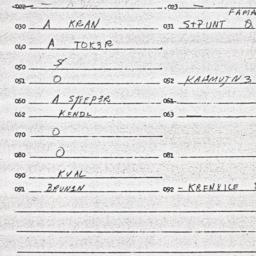 023
FAMA
030 A KRAN 031 STPUNT
040 A TOK3R
050 S
051 O 052
060 A STEEP3R 061
062 KENDL 063
070 O
080 O 081
090 KVAL
091 BRUNIN 092 - KRENKICE